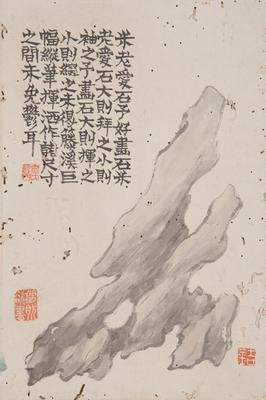 米老愛石予好畫石米
老愛石大則拜之小則
袖之予畫石大則揮之
小則之未得藤溪巨
幅縱筆揮洒作諸尺寸
之間未免鬱耳